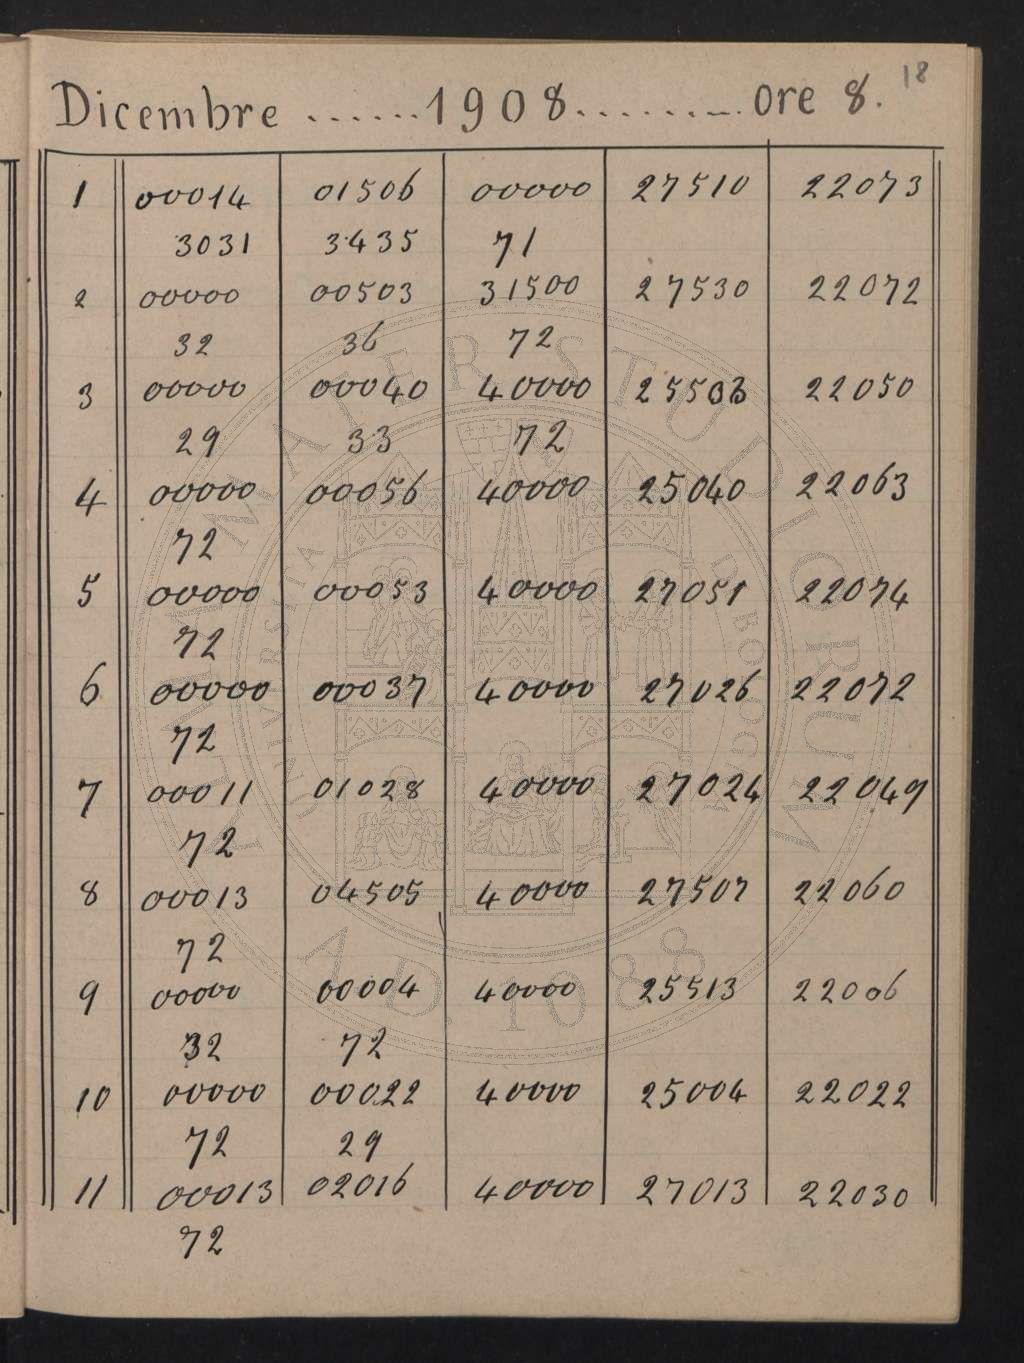 18
Dicembre ...... 1908 ......... ore 8.
1 00014 01506 00000 27510 22073
3031 3435 71
2 00000 00503 31500 27530 22072
32 36 72
3 00000 00040 40000 22050
29 33 72
4 00000 00056 40000 25040 22063
72
5 00000 00053 40000 27051 22074
72
6 00000 00037 40000 27026 22072
72
7 00011 01028 40000 27024 22049
72
8 00013 04505 40000 27507 22060
72
9 00000 00004 40000 25513 22006
32 72
10 00000 00022 40000 25004 22022
72 29
11 00013 02016 40000 27013 22030
72
ALMA MATER STUDIORUM
A.D. 1088